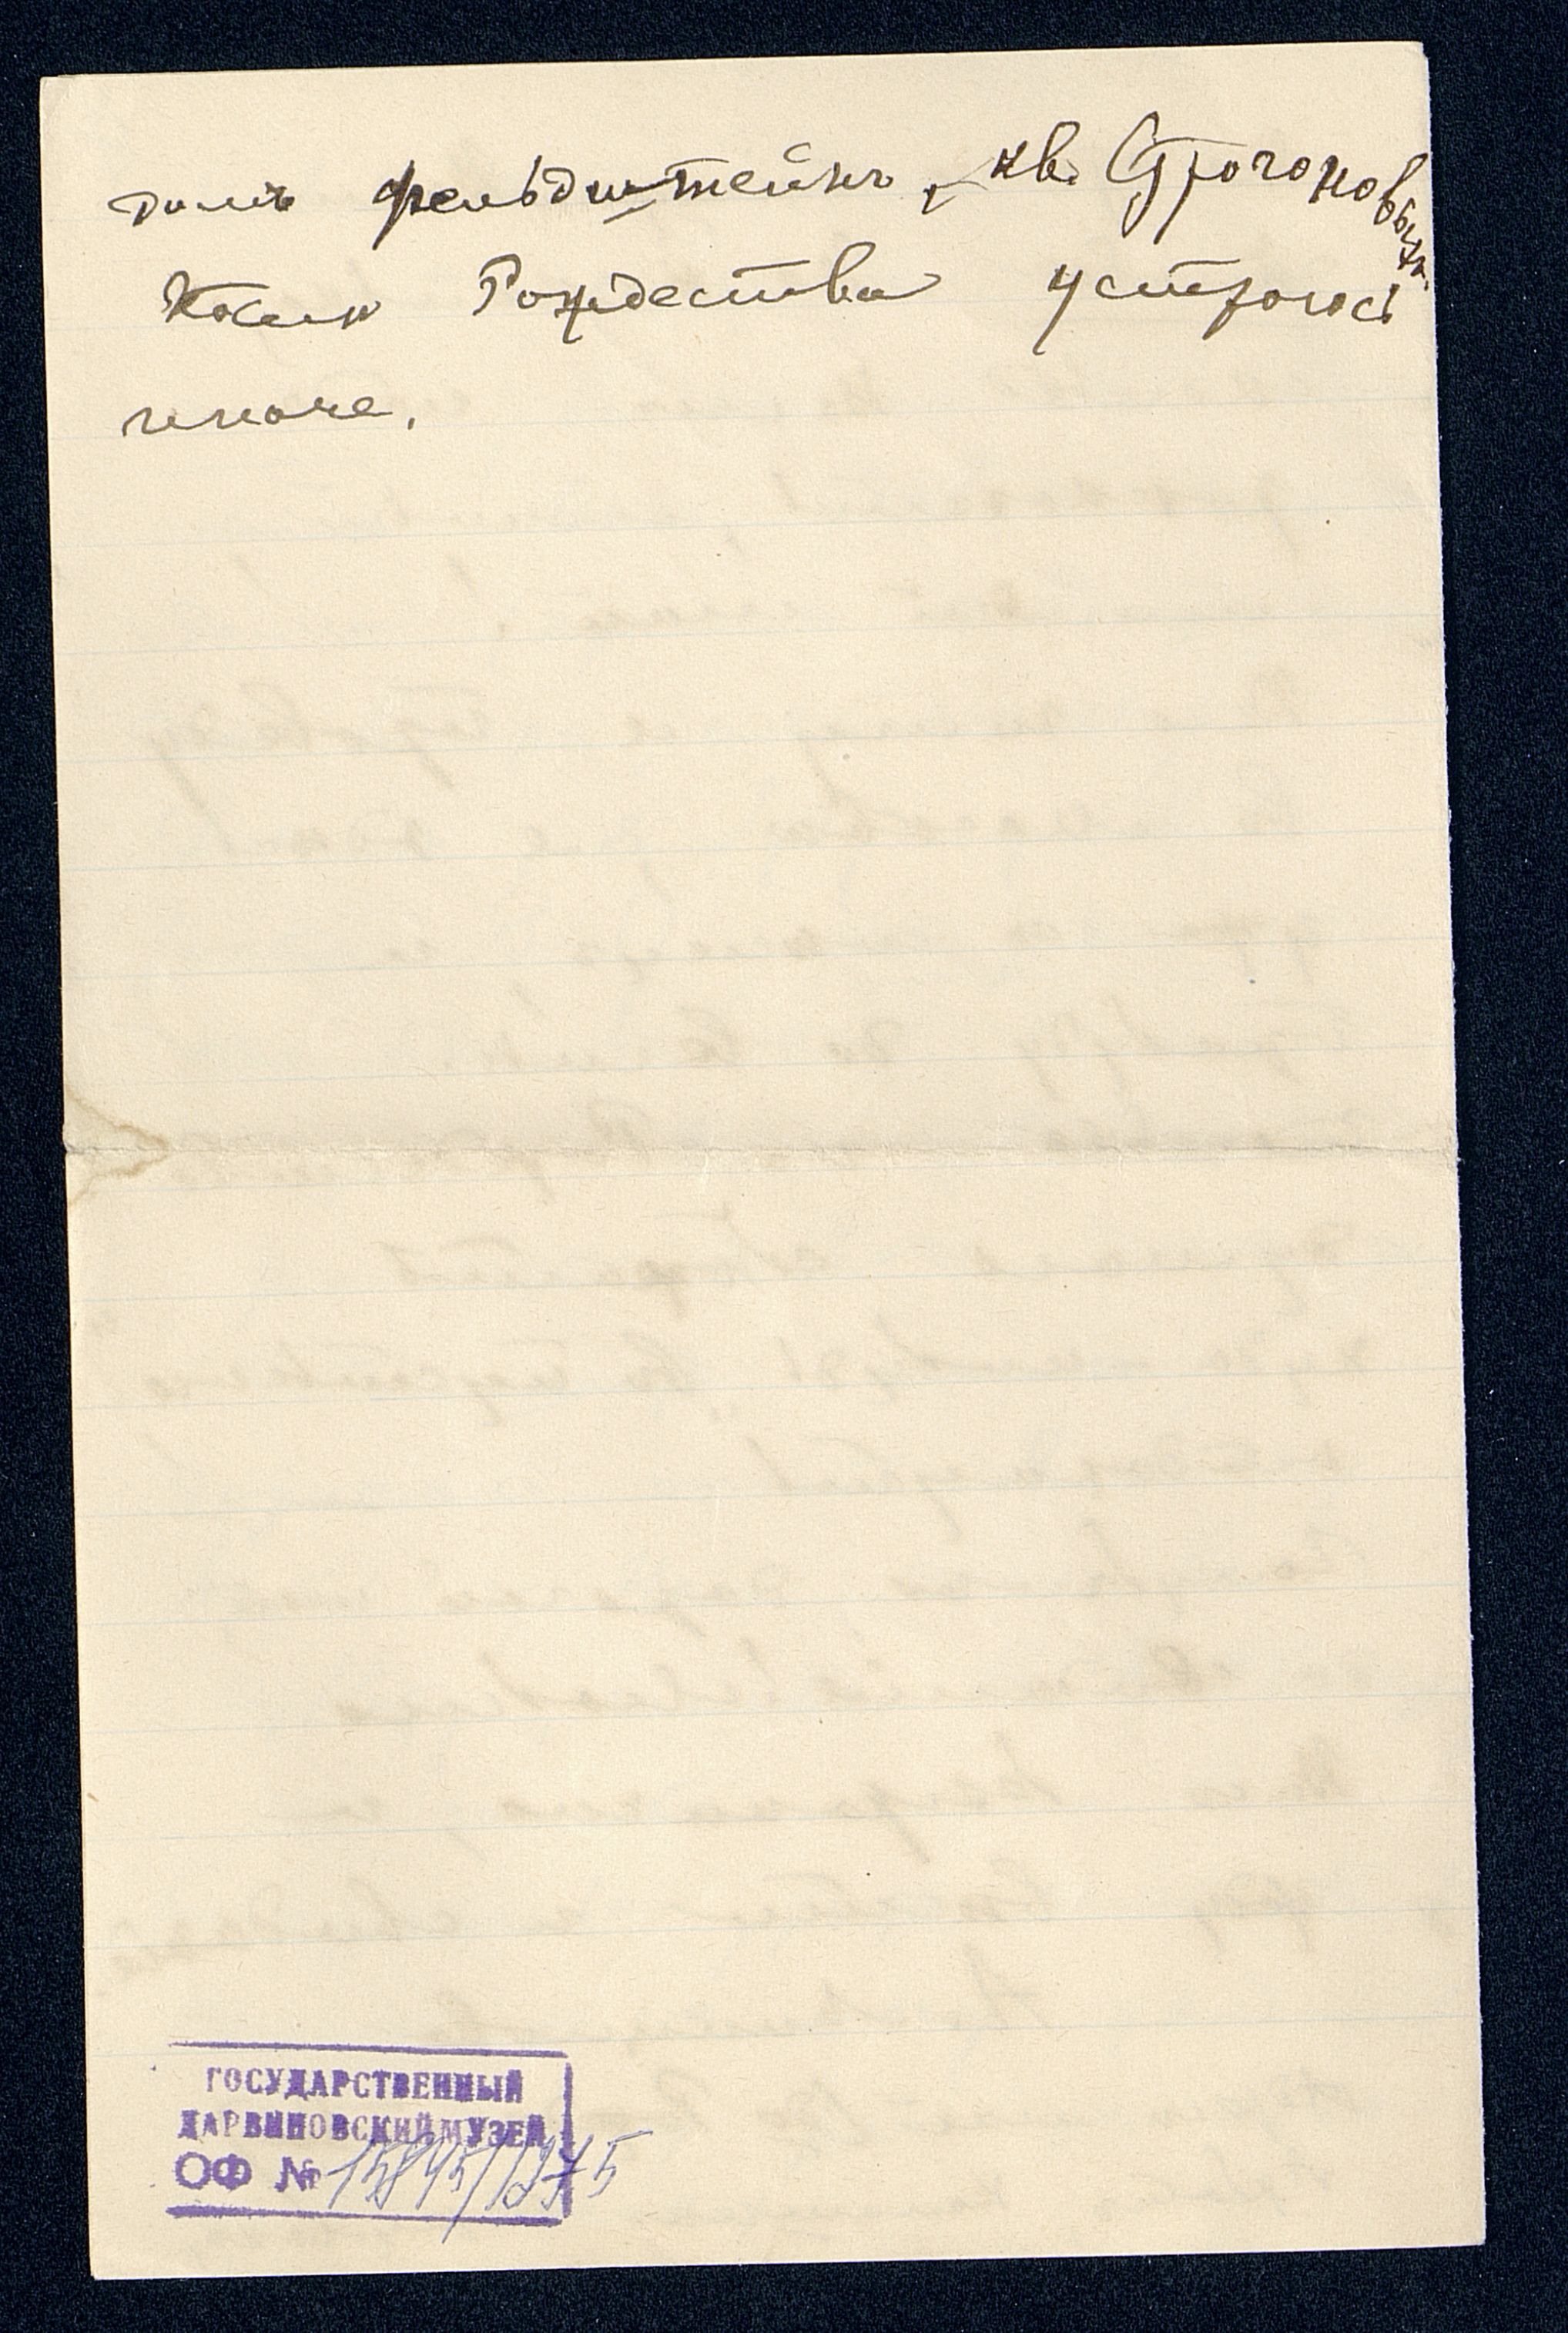 домъ Фельдштейнъ, кв. Строгоновыхъ.
После Рождества устроюсь
иначе.
ГОСУДАРСТВЕННЫЙ
ДАРВИНОВСКИЙ МУЗЕЙ
ОФ №